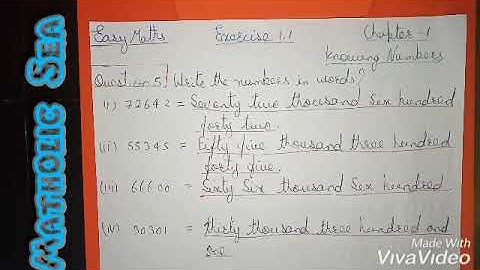 MATHOLIC SEA
Easy Maths Exercise 1.1 Chapter-1
Knowing Numbers
Question 5! Write the numbers in words?
(i) 72642 = Seventy two thousand Sex hundred
forty two.
(ii) 55345 = fifty five thousand three hundred
forty five.
(iii) 66600 = Sixty Six thousand Sex hundred
(iv) 30301 = thirty thousand three hundred and
one
Made With
VivaVideo